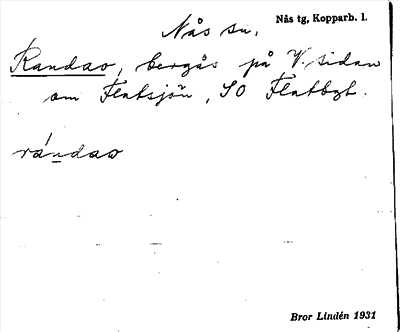 Nås sn. Nås tg, Kopparb. l.
Randao, bergås på V. sidan
om Flatsjön, SO Flatbgt.
rándao
Bror Lindén 1931